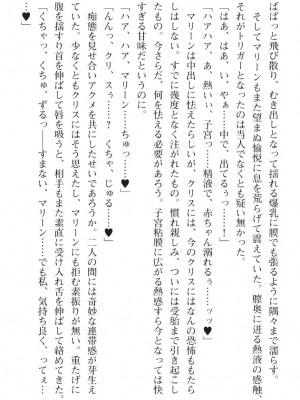 ばばっと飛び散り、むき出しとなって揺れる爆乳に膜でも張るように隅々まで濡らす。
そしてマリーンもまた望まぬ愉悦に息を荒らげて震えていた。膣奥に迸る熱液の感触、
それがトリガーとなったのは当人でなくとも疑い無かった。
「はぁ、はぁ、い、やぁ……中で、出てるぅっ……！」
「ハアハア、あ、熱いぃ、子宮っ……精液で、赤ちゃん溺れるぅ……ッッ♥」
マリーンは中出しに怯えたらしいが、クリスには、今のクリスにはなんの恐怖ももたら
しはしない。すでに幾度となく注がれたもの。慣れ親しみ、ついには受胎まで引き起こし
たもの。今さらだ、何を怯える必要があろう。子宮粘膜に広がる熱感すら今となっては快
すぎる甘味だというのに。
「ハァ、ハァ、マリーン……ちゅっ……♥」
「んんっ、クリスぅ……？　くちゃ、じゅる……♥」
痴態を見せ合いアクメを共にしたせいであろうか、二人の間には奇妙な連帯感が芽生え
ていた。少なくともクリスにはそう思えたし、マリーンにも拒む素振りが無い。重たげに
腹を揺すり首を伸ばして唇を吸うと、相手もまた素直に受け入れ舌を伸ばして絡めてきた。
「くちゃっ、くちゅ、ずるっ――すまない、マリーン……でも私、気持ち良く、ってぇ…
…♥」